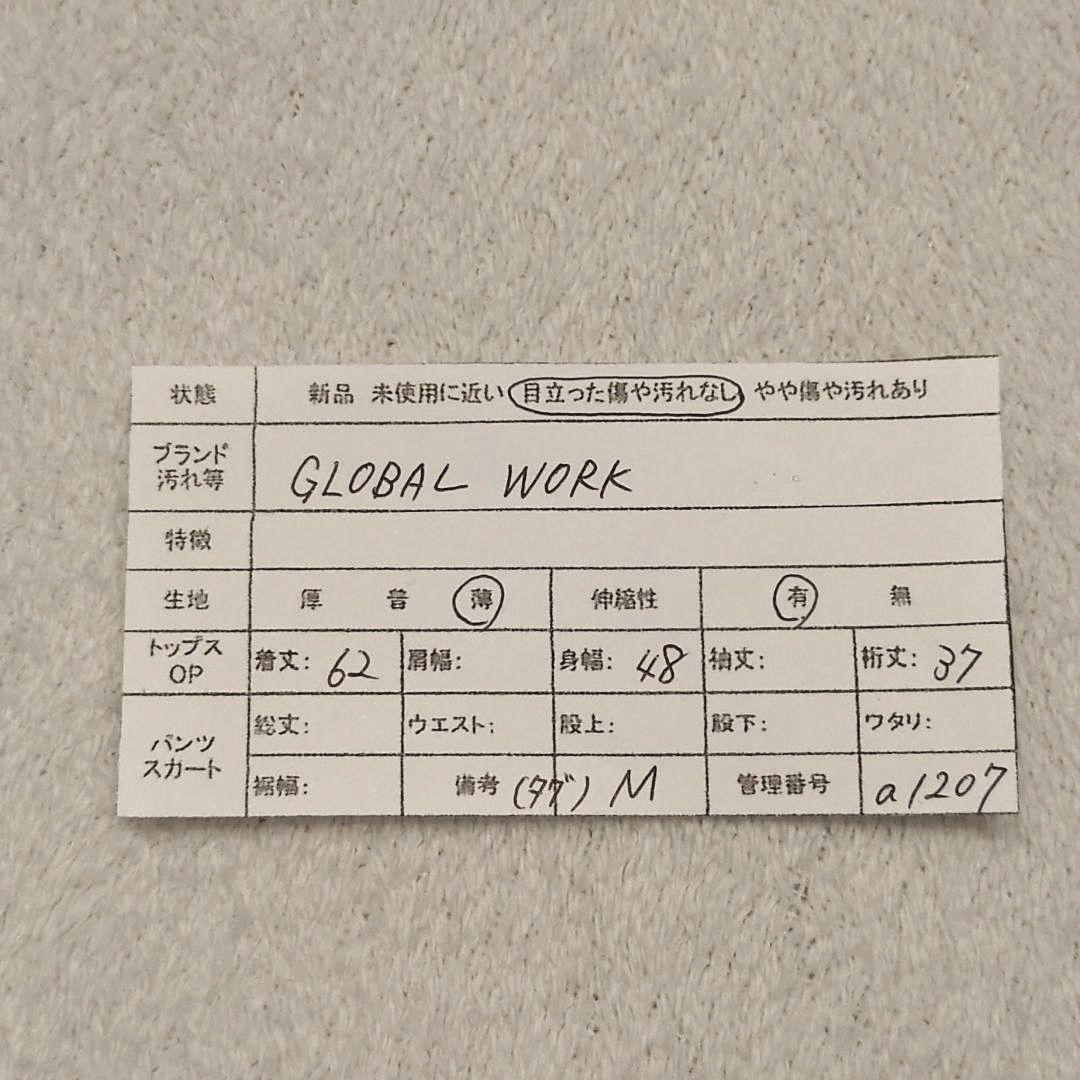 状態 新品 未使用に近い 目立った傷や汚れなし やや傷や汚れあり
ブランド
汚れ等 GLOBAL WORK
特徴
生地 厚 普 薄 伸縮性 有 無
トップス
OP 着丈: 62 肩幅: 身幅: 48 袖丈: 裄丈: 37
パンツ
スカート
総丈: ウエスト: 股上: 股下: ワタリ:
裾幅: 備考 (タグ) M 管理番号 a1207